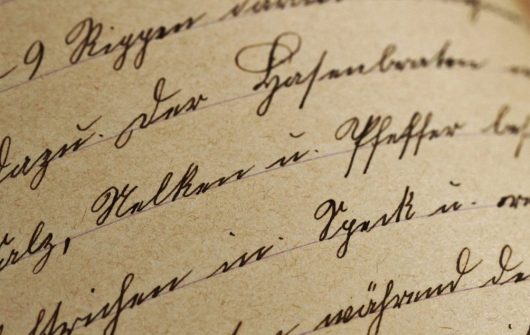 9 Rippen daran
dazu. Der Hasenbraten
Salz, Nelken u. Pfeffer bes
streichen in. Speck u.
während de